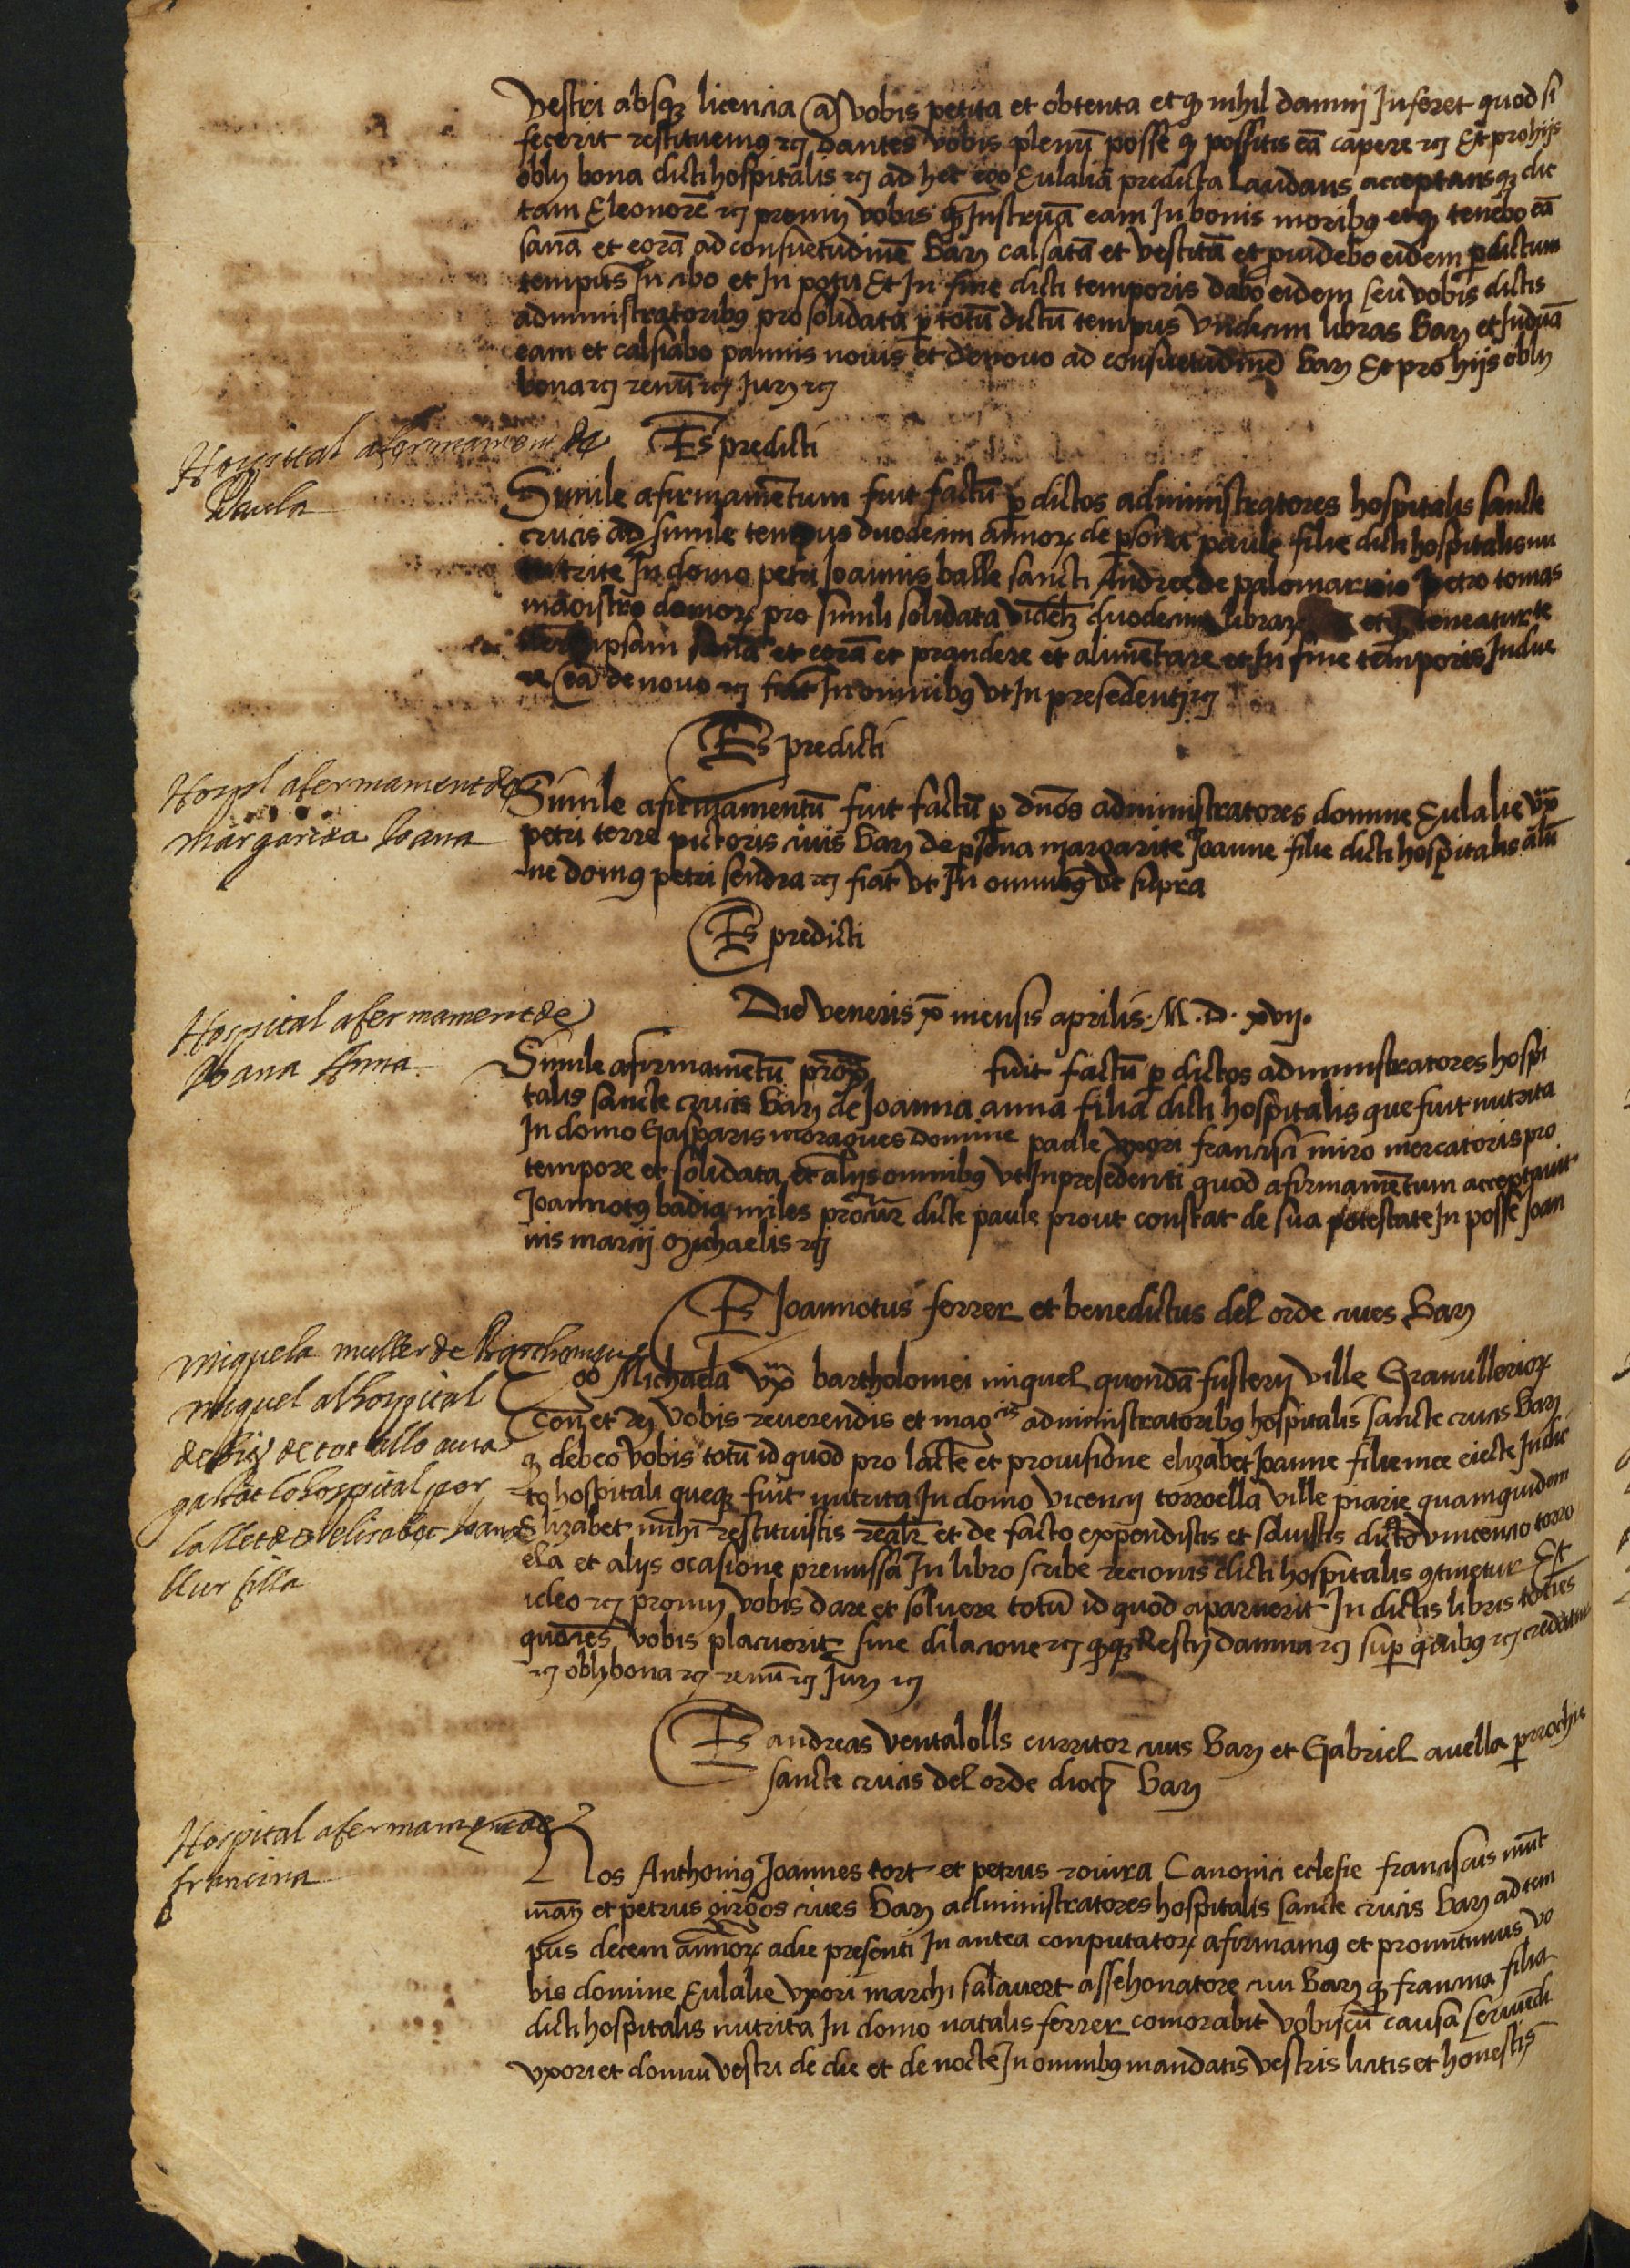 Vestri absq licencia a vobis petita et obtenta etq nihil damni Inferet quod si
fecerit restituemus rcj dantes vobis plenu posse q possitis ea capere rcj Et pro hijs
oblij bona dicti hospitalis rcj ad hec ego Eulalia predicta Laudans acceptansq dic
tam Eleonore rcj promij vobis q Instrua eam In bonis moribus etq tenebo ea
sana et egra ad consuetudine Barn calsata et vestita et providebo eidem p dictum
tempus In cibo et In potu Et In fine dicti temporis dabo eidem seu vobis dictis
administratoribus pro solidata p totu dictu tempus undecim libras Barn et Indua
eam et calsiabo pannis novis et de novo ad consuetudine Barn Et pro hijs oblij
bona rcj renu rcj Jur rcj
Hospital afermament de
Paula
Ts predicti
Simile afirmamentum fuit factu p dictos administratores hospitalis sancte
crucis ad simile tempus duodecim annor de persona paule filie dicti hospitalis nu
trite In domo petri Joannis balle sancti Andree de palomar petro tomas
magistro domor pro simili solidata videlz duodecim librar etq teneatur te
ipsam sana et egra et prandere et alimentare et In fine temporis Indue
re ea de novo rcj fiat In omnibus ut In presedenti rcj
Ts predicti
Hospl afermament de
margarita Joana
Simile afirmamentu fuit factu p dnos administratores domine Eulalie uxori
petri terre pictoris civis Barn de persona margarite Joanne filie dicti hospitalis alu
ne domus petri sendra rcj fiat ut In omnibus ut supra
Ts predicti
Die veneris x mensis aprilis M D xvij
Hospital afermament de
Joana Anna
Simile afirmamentu fuit factu p dictos administratores hospi
talis sancte crucis Barn de Joanna anna filia dicti hospitalis que fuit nutrita
In domo Gasparis moragues domine paule uxori francisci miro mercatoris pro
tempore et solidata et alijs omnibus ut In presedenti quod afirmamentum acceptavit
Joannotus badia miles procur dicte paule prout constat de sua potestate In posse Joan
nis marcij Michaelis rcj
Ts Joannotus ferrer et benedictus del orde cives Barn
miquela muller de Barthomeu
miquel al hospital
de tot allo aura
gastat lo hospital per
la llet de elisabet Joana
llur filla
Ego Michaela uxor bartholomei miquel quonda fusterij ville Granullerior
Confiteor et recognosco vobis reverendis et magcis administratoribus hospitalis sancte crucis Barn
q debeo vobis totu id quod pro lacte et provisione elizabet Joanne filie mee eiecte In dic
to hospitali queq fuit nutrita In domo vicencij torroella ville piarie quamquidem
Elizabet mihi restituistis realr et de facto expendistis et solvistis dicto vincencio torro
ela et alijs ocasione premissa In libro scribe racionis dicti hospitalis continetur Et
ideo rcj promij vobis dare et solvere totu id quod aparuerit In dictis libris toties
quoties vobis placuerit sine dilacione rcj Restij damna rcj super quibus rcj credatur
rcj oblij bona rcj renu rcj Jur rcj
Ts andreas ventalolls curritor civis Barn et Gabriel avella parrochie
sancte crucis del orde dioch Barn
Hospital afermament de
francina
Nos Anthonius Joannes tort et petrus rovira Canonici eclesie franciscus munt
man et petrus girgos cives Barn administratores hospitalis sancte crucis Barn ad tem
pus decem annor a die presenti In antea conputator afirmamus et promitimus vo
bis domine Eulalie uxori marchi salavert assehonatore civi Barn q francina filia
dicti hospitalis nutrita In domo natalis ferrer comorabit vobiscu causa serviendi
uxori et domui vestri de die et de nocte In omnibus mandatis vestris licitis et honestis